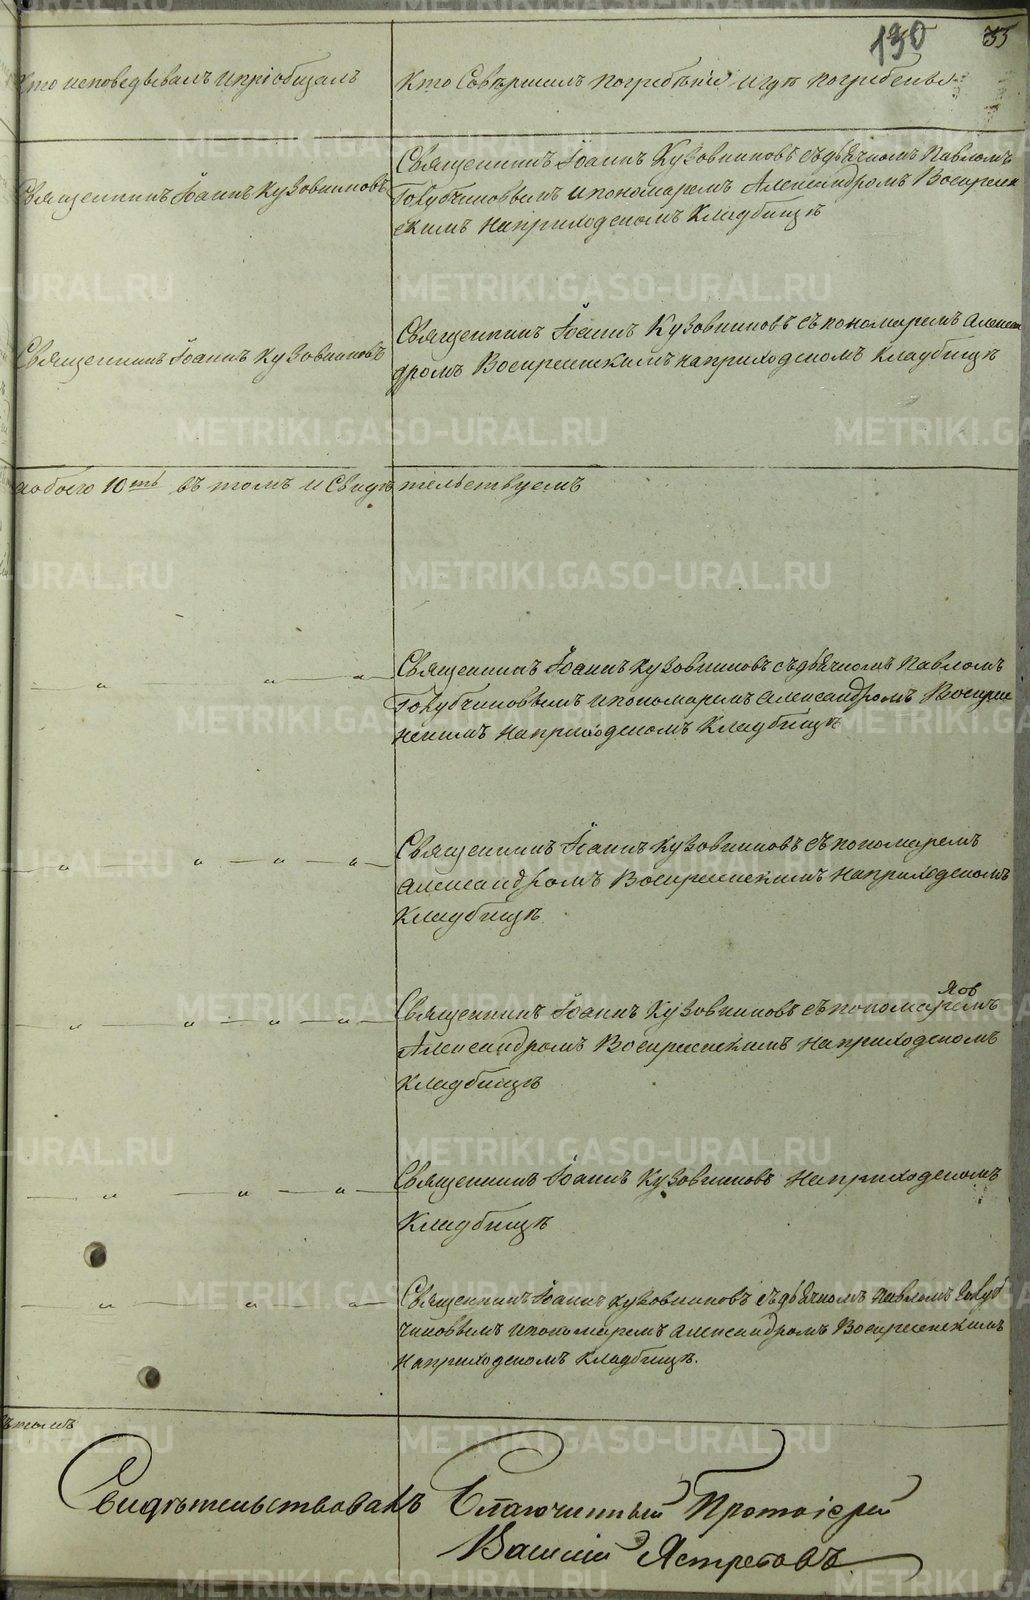 130 35
Кто исповедывалъ и пріобщалъ
Кто Совершилъ погребеніе и где погребены
Священникъ Іоаннъ Кузовниковъ
Священникъ Іоаннъ Кузовниковъ съ дьячкомъ Павломъ
Голубчиковымъ и пономаремъ Александромъ Воскресен
скимъ на приходскомъ Кладбищѣ
Священникъ Іоаннъ Кузовниковъ
Священникъ Іоаннъ Кузовниковъ съ пономаремъ Алексан
дромъ Воскресенскимъ на приходскомъ кладбищѣ
обоего 10ть въ томъ и Свидѣтельствуемъ
Священникъ Іоаннъ Кузовниковъ съ дьячкомъ Павломъ
Голубчиковымъ и пономаремъ Александромъ Воскресе
нскимъ на приходскомъ Кладбищѣ
Священникъ Іоаннъ Кузовниковъ съ пономаремъ
Александромъ Воскресенскимъ на приходскомъ
Кладбищѣ
Священникъ Іоаннъ Кузовниковъ съ пономаремъ
Александромъ Воскресенскимъ на приходскомъ
Кладбищѣ
Священникъ Іоаннъ Кузовниковъ на приходскомъ
Кладбищѣ
Священникъ Іоаннъ Кузовниковъ съ дьячкомъ Павломъ Голуб
чиковымъ и пономаремъ Александромъ Воскресенскимъ
на приходскомъ кладбищѣ.
въ томъ
Свидѣтельствовалъ Благочинный Протоіерей
Василій Ястребовъ
METRIKI.GASO-URAL.RU